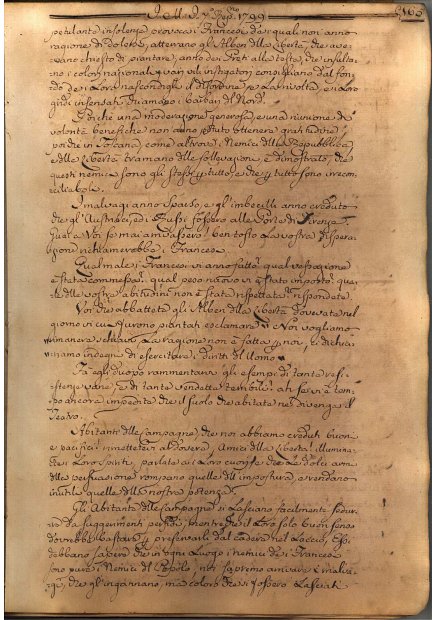 I. M. I. 1799 163
petulante insolenza provoca i Francesi, da quali non anno
ragione di dolersi, atterrano gli Alberi della Libertà, che ave-
vano chiesto di piantare, anno de i Preti alla testa, che insulta-
no i colori nazionali, e quai vili instigatori consigliano dal fon-
do de i Loro nascondigli il disordine, e la rivolta, e i Loro
gridi insensati chiamano i barbari del Nord.
Poiche una moderazione generosa, e una riunione di
volontà benefiche non anno potuto ottenere gratitudine,
poiche in Toscana, come altrove i Nemici della Repubblica,
e della Libertà tramano delle sollevazioni, è dimostrato, che
questi nemici sono gli stessi p tutto, e che p tutto sono irrecon-
ciliabili.
I malvagi anno sparso, e gl'imbecilli anno creduto
che gl'Austriaci, ed i Russi fossero alle Porte di Firenze.
Guai a Voi se mai andassero! ben tosto la vostra dispera-
zione richiamerebbe i Francesi.
Qual male i Francesi vi anno fatto? qual vessazione
è stata commessa? qual peso nuovo vi è stato imposto? qua-
le delle vostre abitudini non è stata rispettata? rispondete.
Voi che abbattete gli Alberi della Libertà, dovevate nel
giorno in cui furono piantati esclamare: Noi vogliamo
rimanere schiavi, la ragione non è fatta p noi, ci dichia-
riamo indegni di esercitare i diritti dell'Uomo.
Fa egli d'uopo rammentarvi gli esempi di tante resi-
stenze vane, e di tante vendette terribili? ah se vi è tem-
po ancora impedite che il suolo che abitate ne divenga il
Teatro.
Abitanti delle Campagne, che noi abbiamo creduti buoni
e pacifici, rimettetevi al dovere, Amici della Libertà! illumina-
te i Loro spiriti, parlate a i Loro cuori, e che le dolci armi
della persuasione rompano quelle dell'impostura, e rendano
inutili quelle della nostra potenza.
Gli Abitanti delle Campagne si lasciano facilmente sedur-
re da suggerimenti perfidi, mentre che il Loro solo buon senso
dovrebbe bastare p preservarli dal cadere nel Laccio, Essi
debbano sapere che in ogni Luogo i Nemici de i Francesi
sono pure i Nemici del Popolo, noi sapremo arrivare i malva-
gi, che gl'ingannano, ma coloro che si fossero lasciati